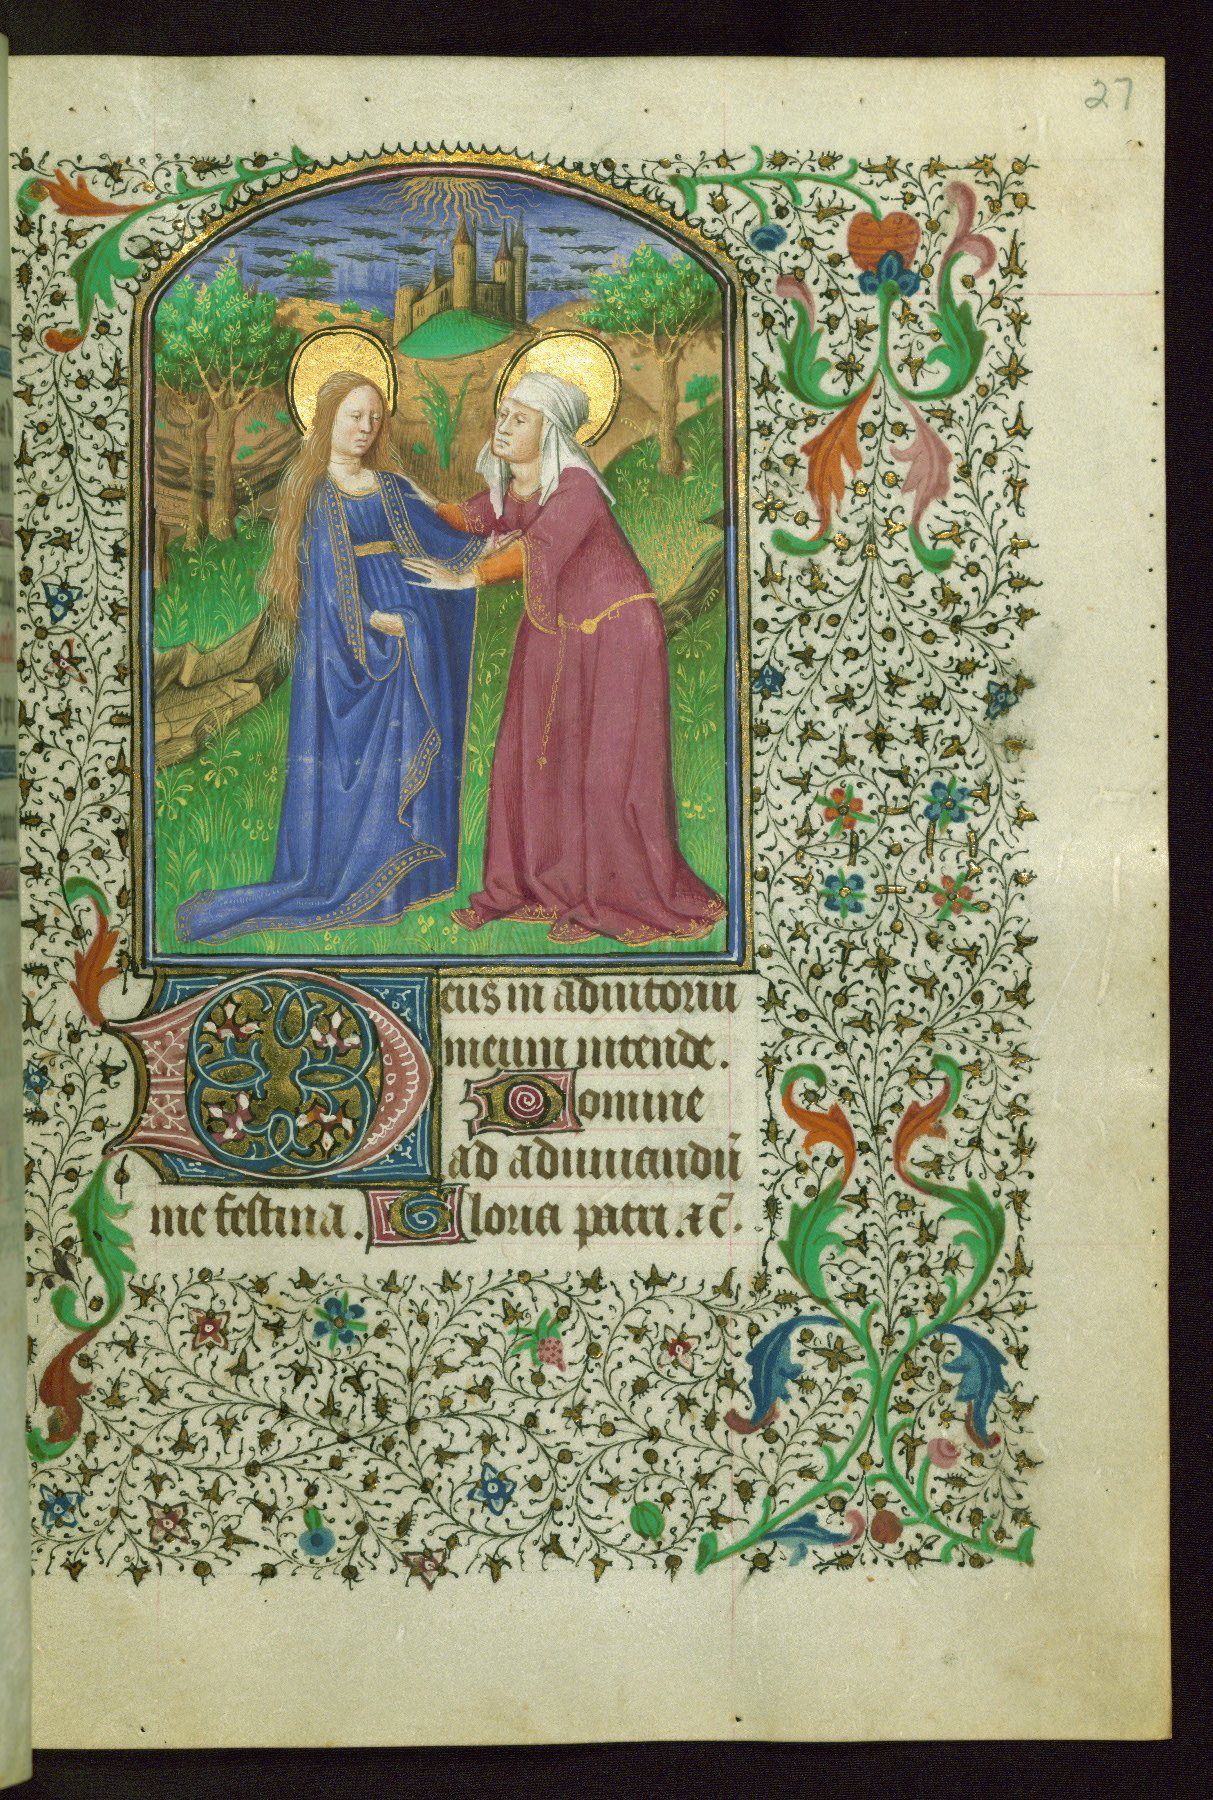 27
Deus in adiutoriu
meum intende.
Domine
ad adiuuandu͂
me festina. Gloria patri. ⁊c̃.